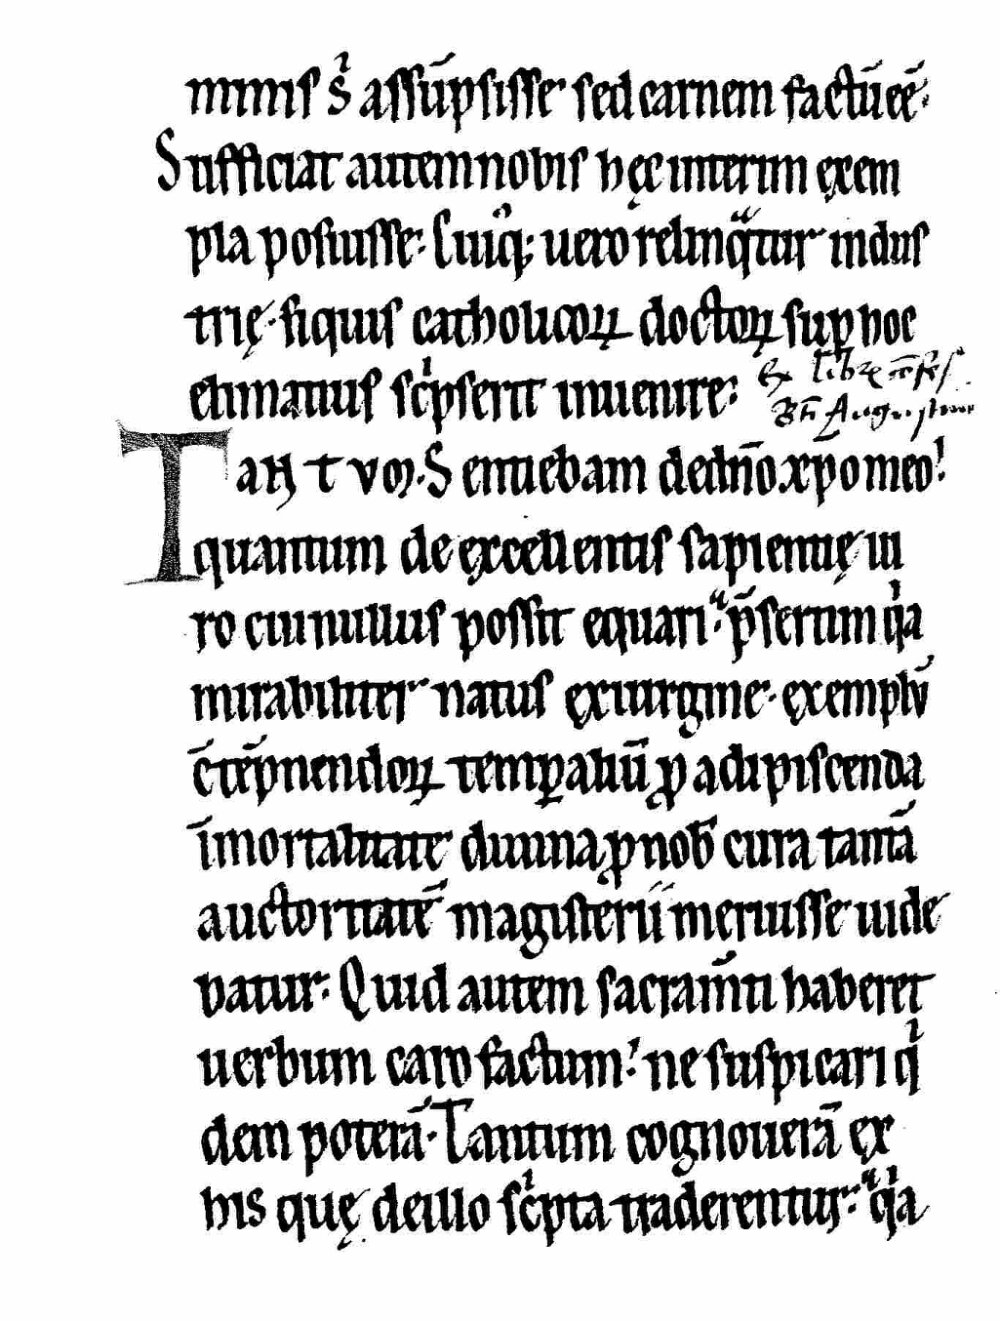 minis s̉ assūpsisse sed carnem factū eē.
Sufficiat autem nobis hęc interim exem
pla posuisse. Cuiq; uero relinqͣtur indus
trię. siquis catholicoꝝ doctoꝝ sup hoc
elimatius scͥpserit inuenire.
Ex libr̄ cōfes
Bti Augustini
TANTVM. Sentiebam de dn̄o xp̄o meo.
quantum de excellentis sapientię ui
ro cui nullus possit equari. p̄sertim qͥa
mirabiliter natus ex uirgine. exemplū
c̄tēpnendoꝝ temꝑaliū ꝓ adipiscenda
īmortalitate diuina ꝓ nob̄ cura tantā
auctoritatē magisterii meruisse uide
batur. Quid autem sacram̄ti haberet
uerbum caro factum. ne suspicari qͥ
dem poterā. Tantum cognouerā ex
his quę de illo scͥpta traderentur. qͥa